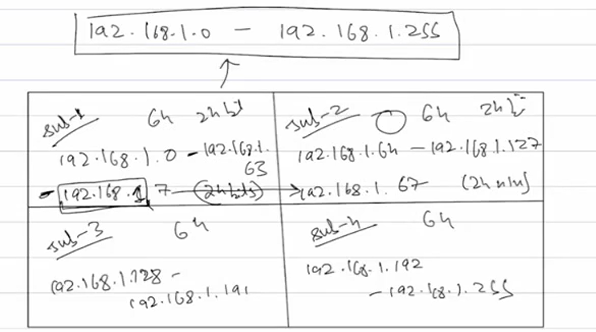 192.168.1.0 - 192.168.1.255
sub-1 64 24 bit
192.168.1.0 - 192.168.1.
63
- 192.168.1.7 (24 bits)
sub-2 64 24 bit
192.168.1.64 - 192.168.1.127
192.168.1.67 (24 bits)
sub-3 64
192.168.1.128 -
192.168.1.191
sub-4 64
192.168.1.192
- 192.168.1.255